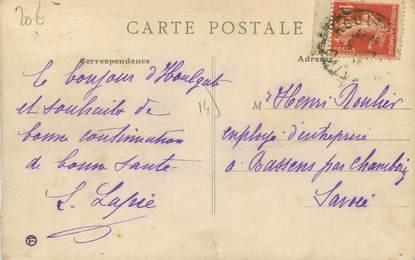 20€
CARTE POSTALE
Correspondance
Adresse
Le bonjour d'Houlgate
et souhaits de
bonne continuation
de bonne santé
L. Lapié
14
Mr Henri Roulier
employé d'entreprise
à Bassens par Chambéry
Savoie